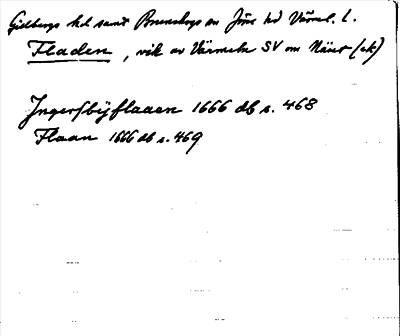 Gillbergs hd samt Broserudsgs sn Jösse hd Värml. l.
Fladen, vik av Värmeln SV om Näset (ek)
Jngersbÿflaaen 1666 db s. 468
Flaan 1666 db s. 469